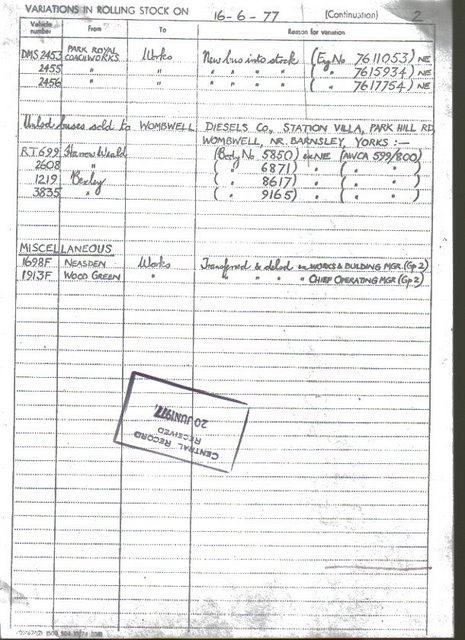 VARIATIONS IN ROLLING STOCK ON 16-6-77 (Continuation) 2
Vehicle number From To Reason for variation
DMS 2453 PARK ROYAL COACHWORKS Works New bus into stock (Eng No 7611053) NE
2455 " " " " " " ( " 7615934) NE
2456 " " " " " " ( " 7617754) NE
Unlsd buses sold to WOMBWELL DIESELS Co., STATION VILLA, PARK HILL RD
WOMBWELL, NR. BARNSLEY, YORKS :—
RT 699 Harrow Weald (Body No 5850) ex NE (AWCA 599/800)
2608 " ( " 6871) " ( " " )
1219 Bexley ( " 8617) " ( " " )
3835 " ( " 9165) " ( " " )
MISCELLANEOUS
1698F NEASDEN Works Transferred & delsd ex WORKS & BUILDING MGR. (Gp 2)
1913F WOOD GREEN " " " " " CHIEF OPERATING MGR (Gp 2)
CENTRAL RECORD
RECEIVED
20 JUN 1977